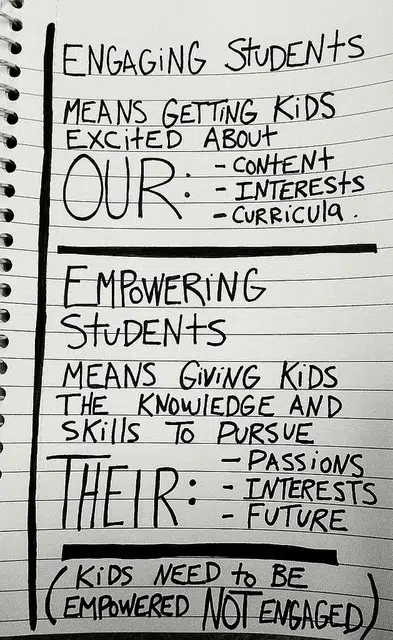 ENGAGING STUDENTS
MEANS GETTING KIDS
EXCITED ABOUT
OUR: - CONTENT
- INTERESTS
- CURRICULA.
EMPOWERING
STUDENTS
MEANS GIVING KIDS
THE KNOWLEDGE AND
SKILLS TO PURSUE
THEIR: - PASSIONS
- INTERESTS
- FUTURE
(KIDS NEED to BE
EMPOWERED NOT ENGAGED)